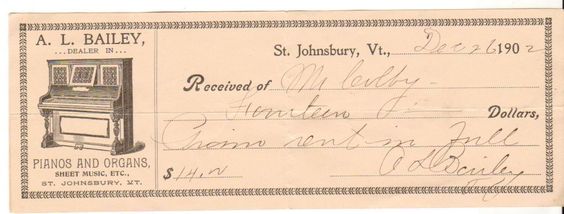 A. L. BAILEY,
... DEALER IN ...
PIANOS AND ORGANS,
SHEET MUSIC, ETC.,
ST. JOHNSBURY, VT.
St. Johnsbury, Vt., Dec 26 1902
Received of Mr Colby
Fourteen Dollars,
Piano rent in Full
$14.00 A L Bailey